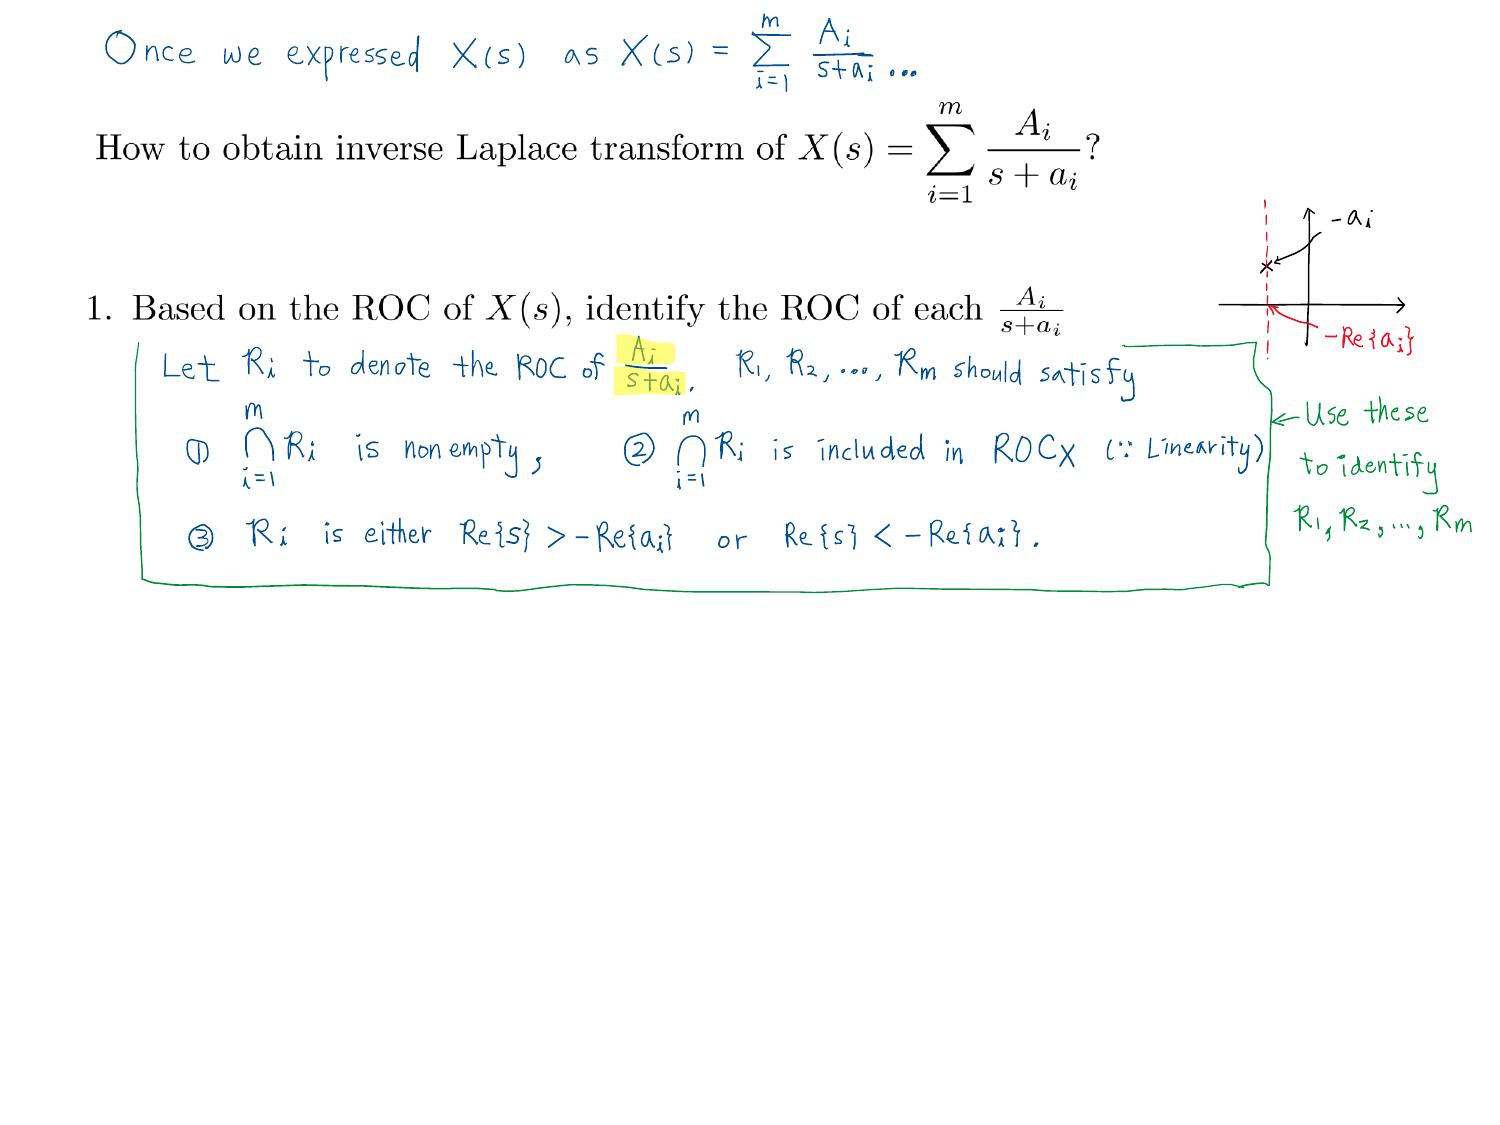 Once we expressed X(s) as X(s) = \sum_{i=1}^{m} \frac{A_i}{s+a_i} ...
How to obtain inverse Laplace transform of X(s) = \sum_{i=1}^{m} \frac{A_i}{s+a_i}?
-a_i
1. Based on the ROC of X(s), identify the ROC of each \frac{A_i}{s+a_i}
-Re{a_i}
Let R_i to denote the ROC of \frac{A_i}{s+a_i}. R_1, R_2, ..., R_m should satisfy
① \bigcap_{i=1}^{m} R_i is nonempty, ② \bigcap_{i=1}^{m} R_i is included in ROC_X (∵ Linearity)
③ R_i is either Re{s} > -Re{a_i} or Re{s} < -Re{a_i}.
← Use these
to identify
R_1, R_2, ..., R_m